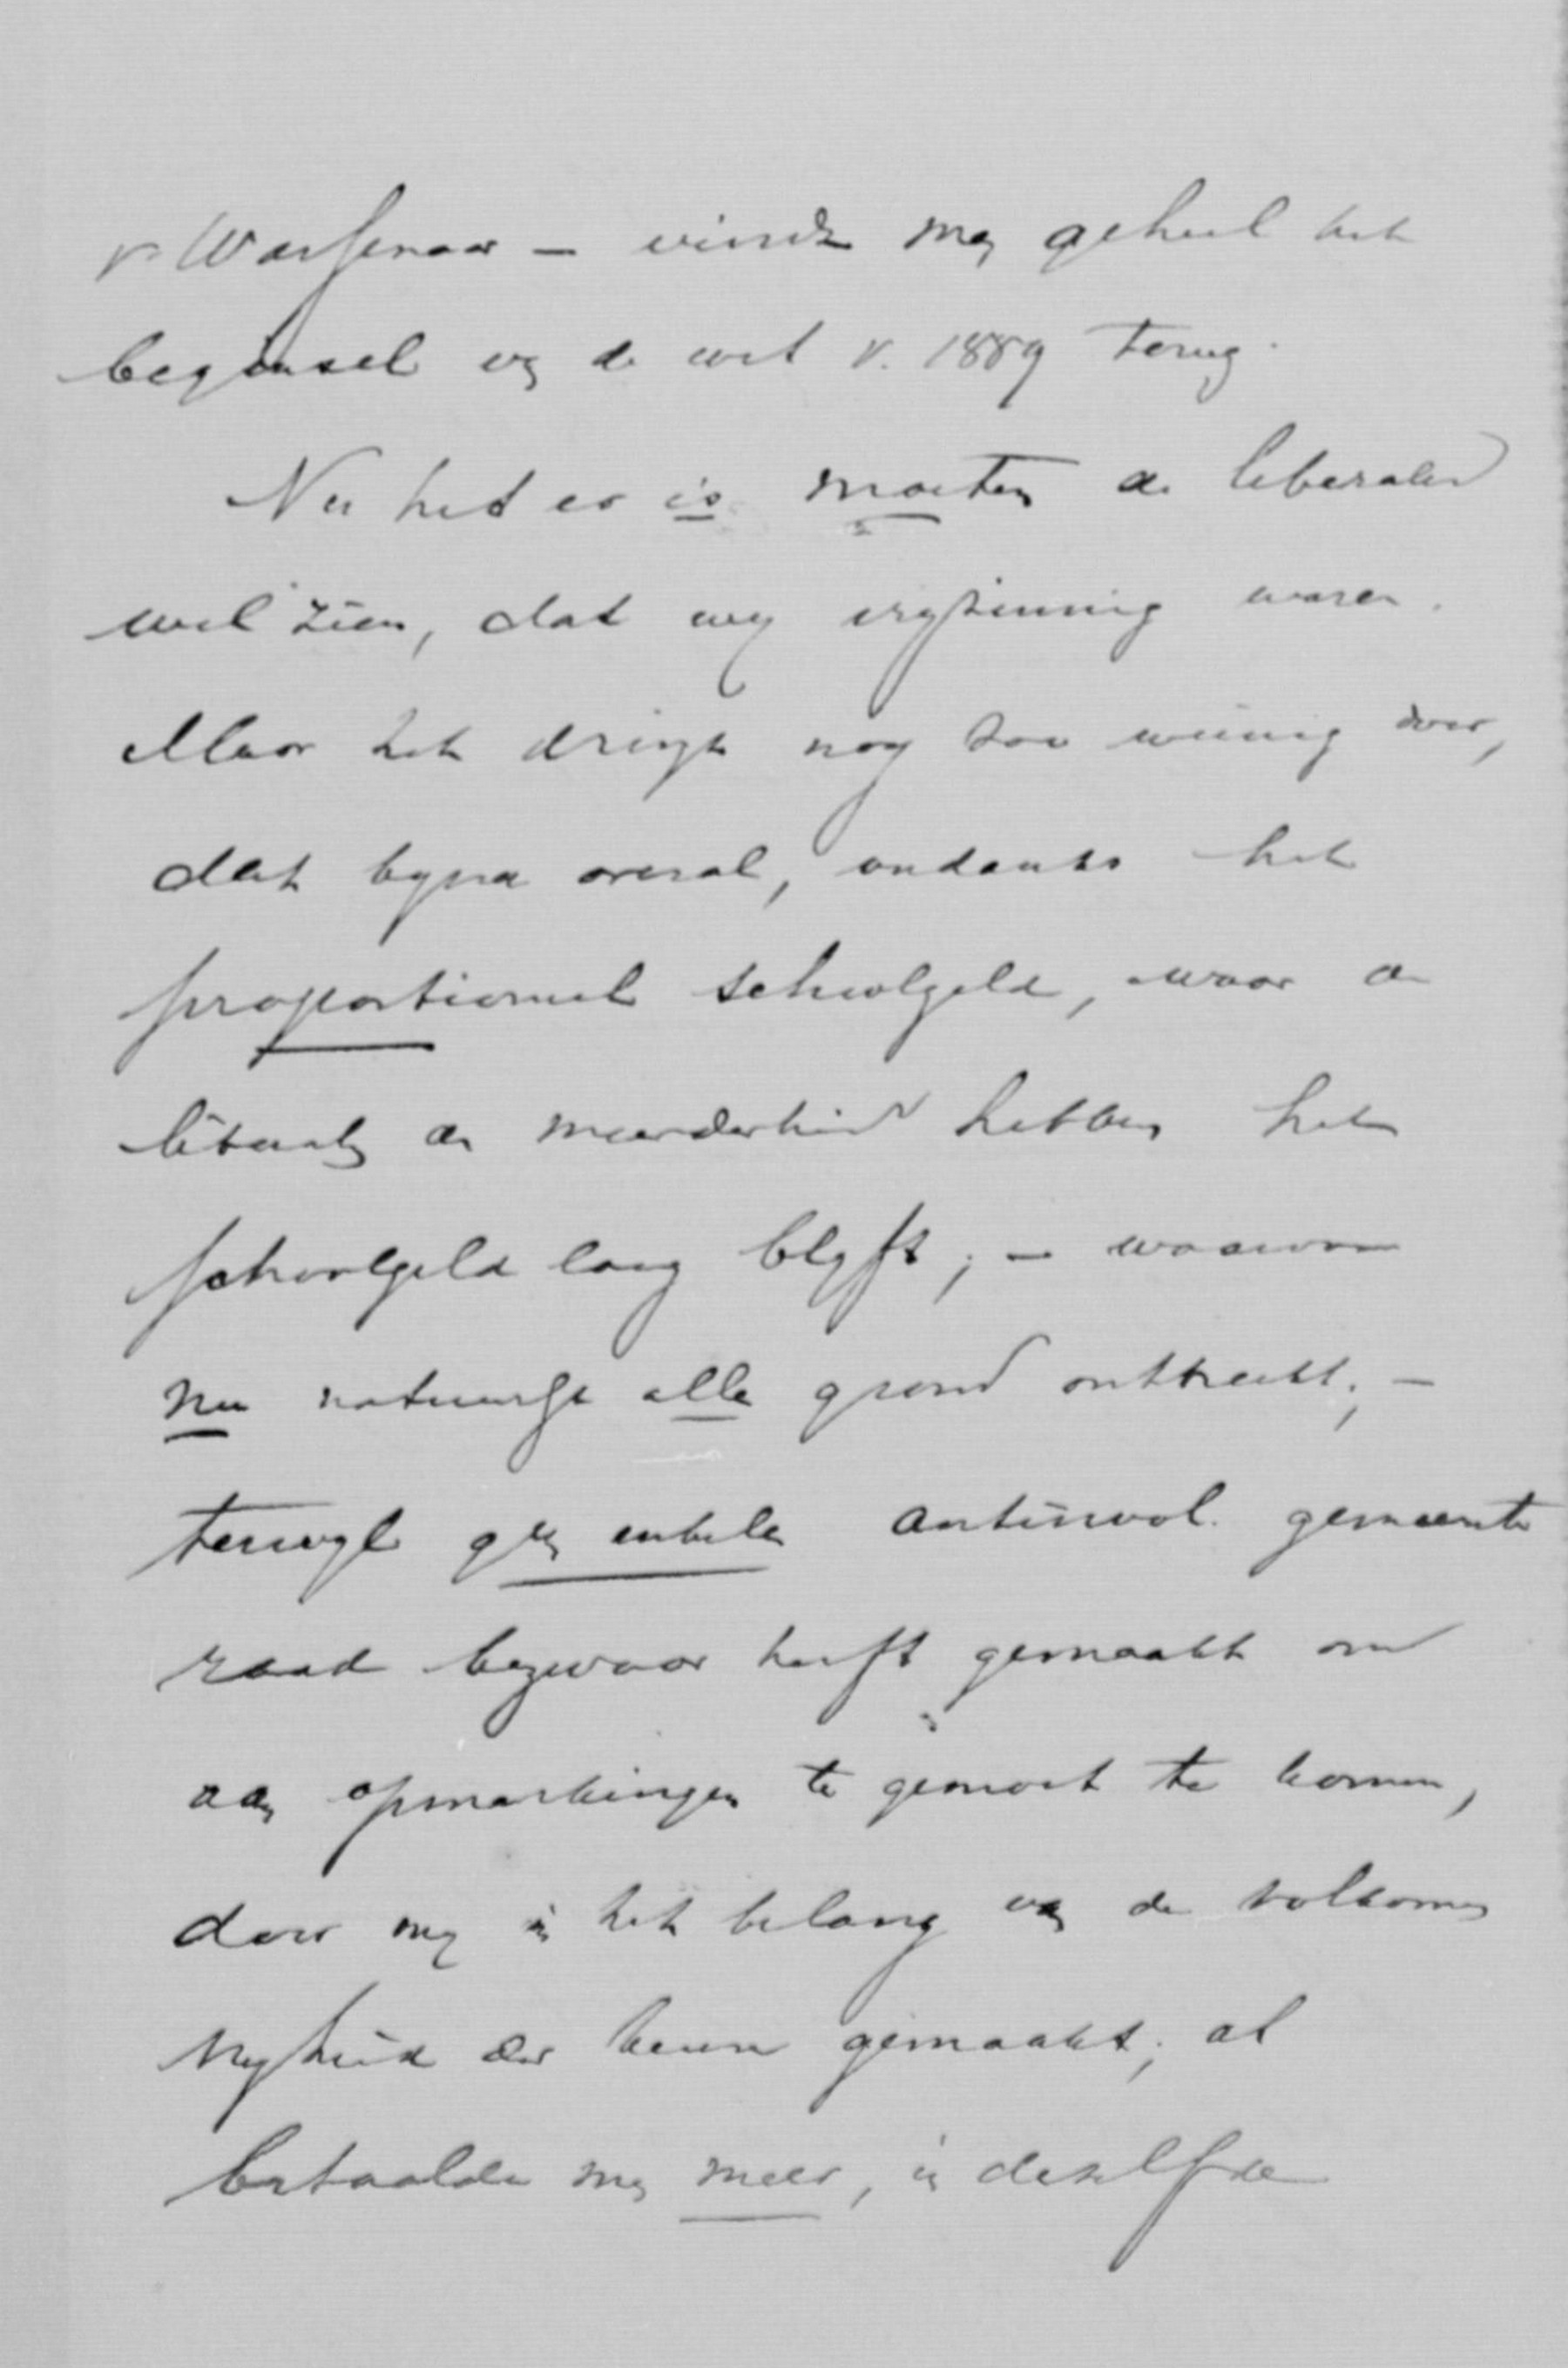 v. Wassenaar – vindt men geheel het
beginsel van de wet v. 1889 terug.
Nu het er is moeten de liberalen
wel zien, dat wy vryzinnig waren.
Maar het dringt nog zoo weinig door,
dat byna overal, ondanks het
proportioneel schoolgeld, waar de
liberalen de meerderheid hebben het
schoolgeld laag blyft; – waarvan
nu natuurlyk alle grond ontbreekt; –
terwyl geen enkele antirevol. gemeente
raad bezwaar heeft gemaakt om
aan opmerkingen te gemoet te komen,
door my in het belang van de volkomen
vryheid der keuze gemaakt; al
betaalde men meer, in dezelfde